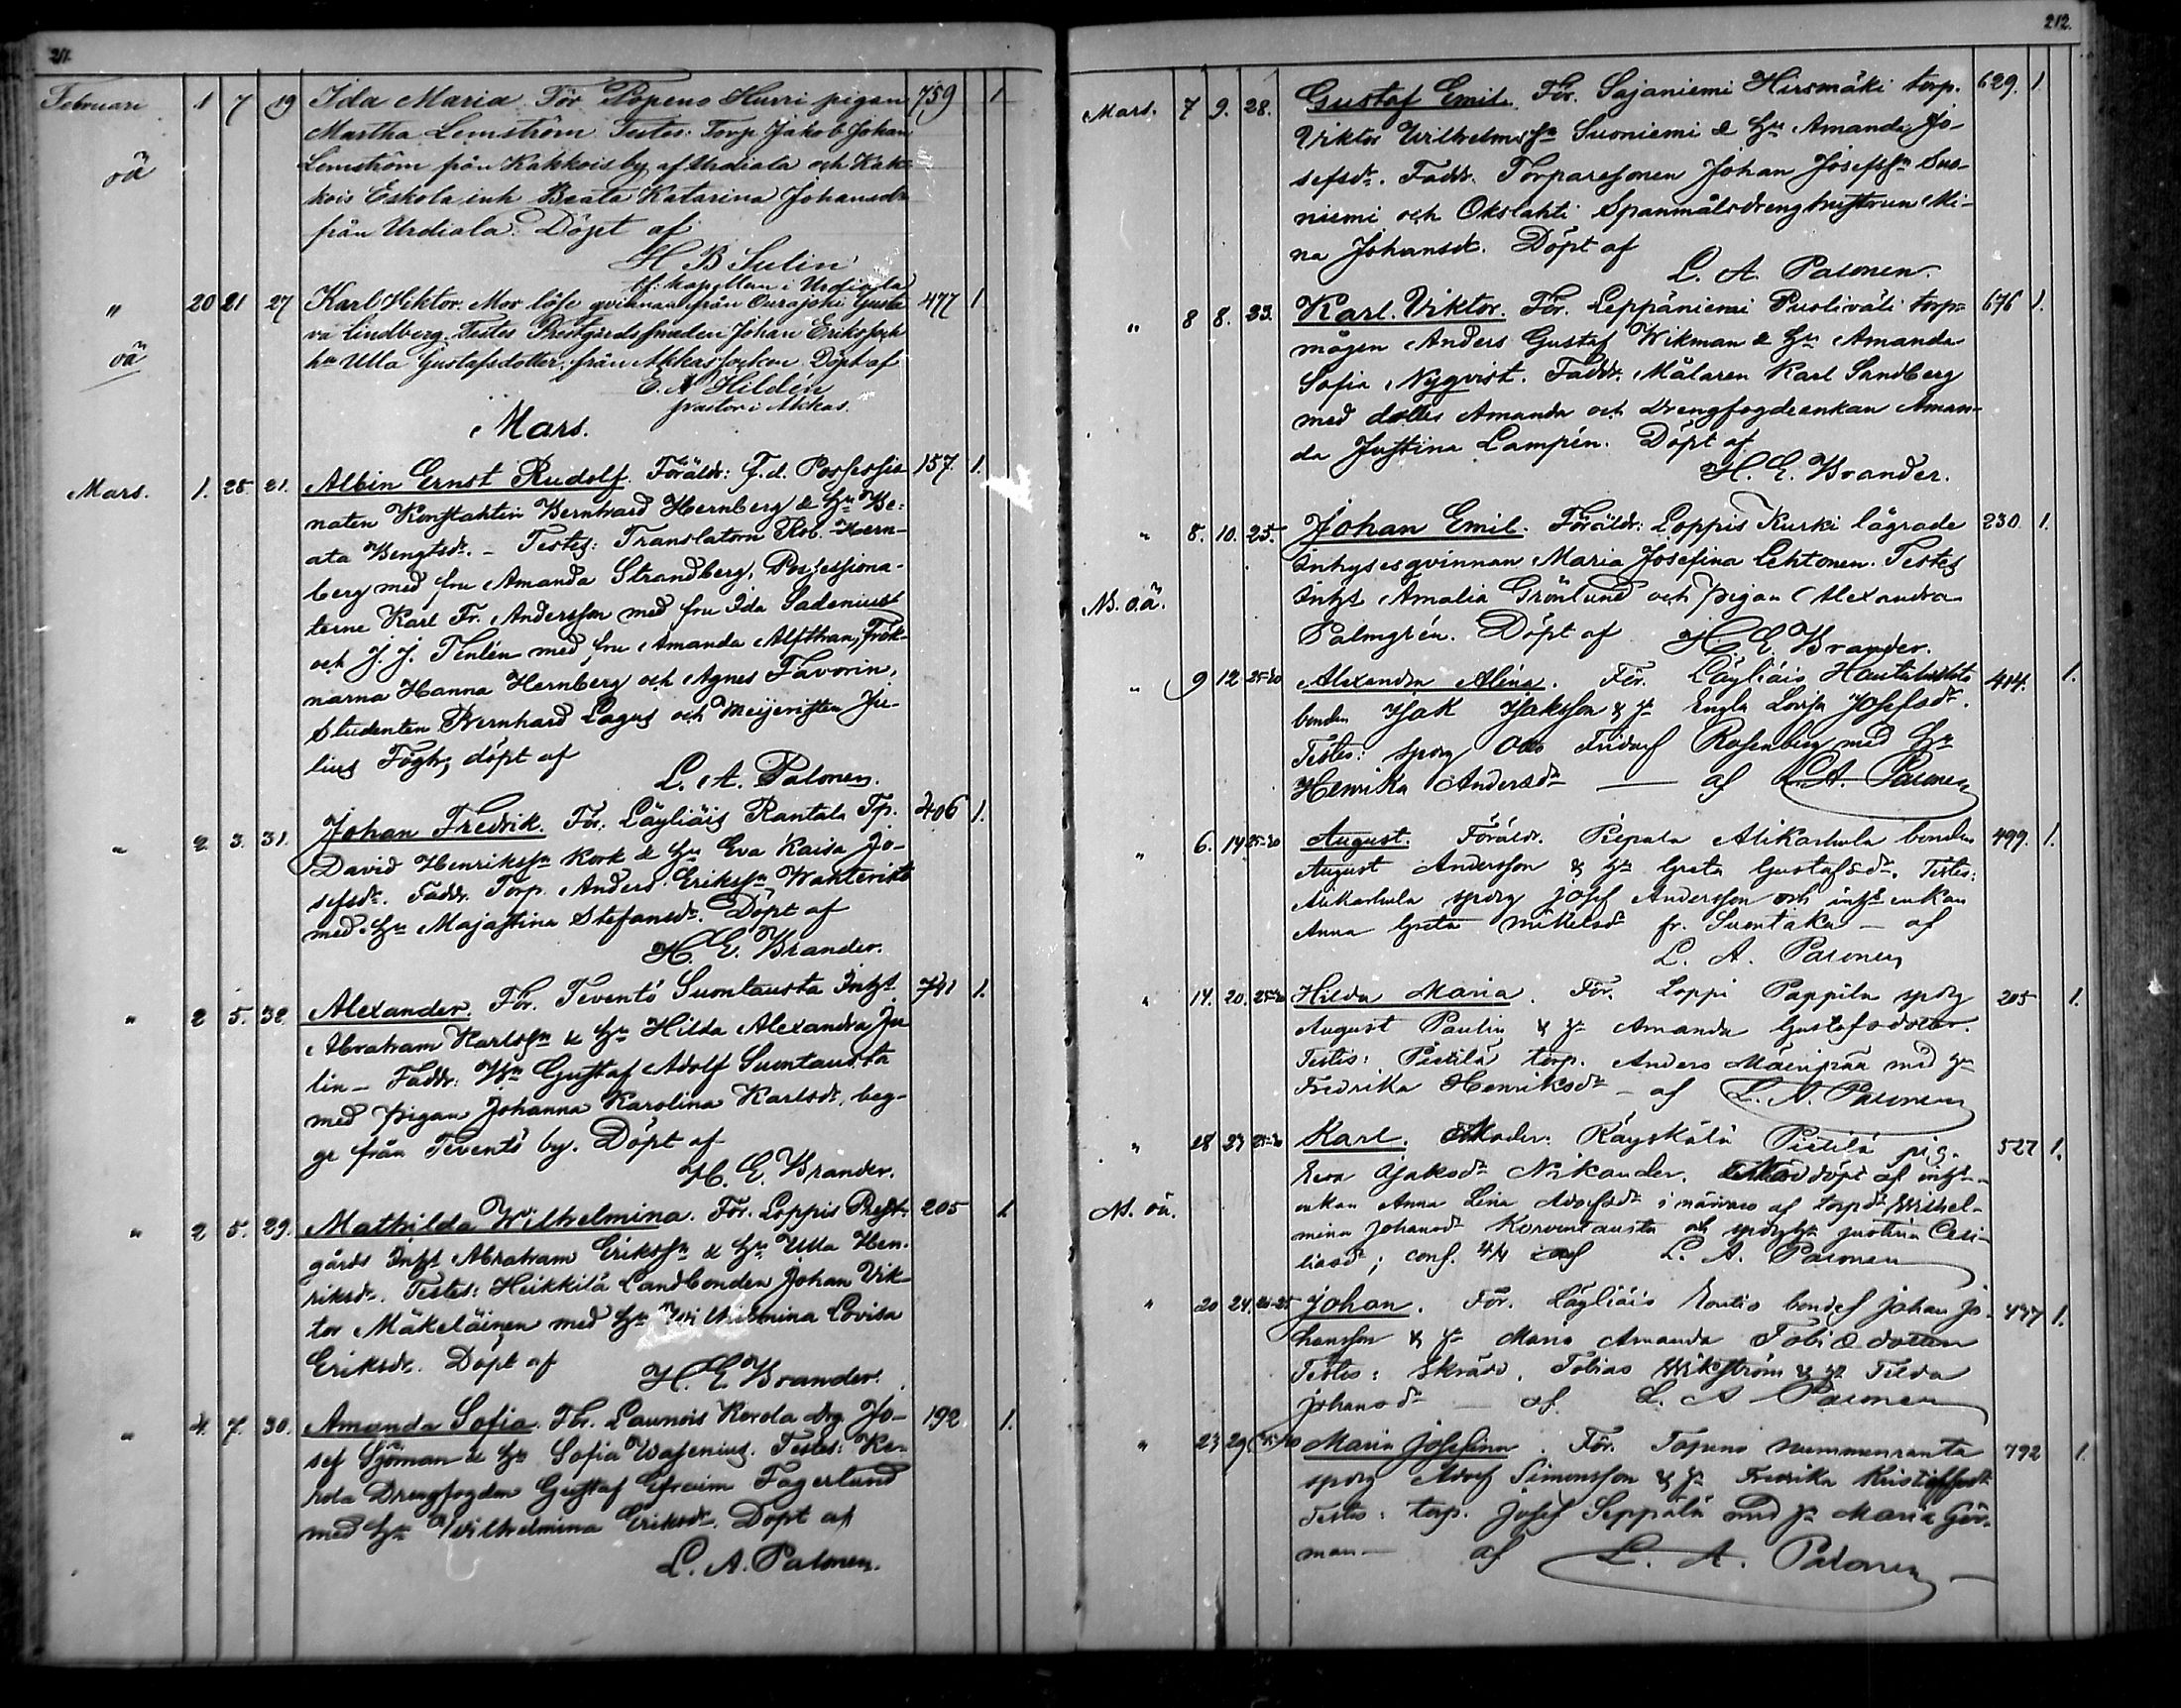 211.
Februari 1 7 19 Ida Maria. För Topeno Hurri pigan 759 1
Martha Lemström Testes: Torp Jakob Johan
oä Lemström från Kakkois by af Urdiala och Kak-
kois Eskola inh Beata Katarina Johansdr
från Urdiala. Döpt af
H B Sulin
tf. kapellan i Urdiala
" 20 21 27 Karl Hektor. Mor lösa qvinnan från Ourajoki Gusta 477 1
va Lindberg. Testes Prestgårdssmeden Johan Eriksson
oä hu Ulla Gustafsdotter från Akkas socken Döpt af
E. A Hildén
pastor i Akkas.
Mars.
Mars. 1. 25 21. Albin Ernst Rudolf. Föräldr: F.d. Possessio- 157. 1.
naten Konstantin Bernhard Hernberg & hu Be-
ata Bengtsdr. – Testes: Translatorn Rob. Hern-
berg med fru Amanda Strandberg, Possessiona-
terne Karl Fr. Andersson med fru Ida Sadenius
och J. J. Tenlén med fru Amanda Alfthan, Frök-
narna Hanna Hernberg och Agnes Favorin,
Studenten Bernhard Lagus och Meijeristen Ju-
lius Fögh; döpt af
L. A. Palonen.
" 2. 3. 31. Johan Fredrik. För. Läyliäis Rantala Tp. 406 1.
David Henrikssn Kork & hu Eva Kaisa Jo-
sefsdr. Faddr. Torp. Anders Erikssn Wahteristo
med hu Majastina Stefansdr. Döpt af
H. E. Brander.
" 2 5. 32. Alexander. För. Teventö Suontausta Inhs 741 1.
Abraham Karlssn & hu Hilda Alexandra Ju
lin – Faddr: Bn Gustaf Adolf Suontausta
med pigan Johanna Karolina Karlsdr, beg-
ge från Teventö by. Döpt af
H. E. Brander.
" 2 5. 29. Mathilda Wilhelmina. För. Loppis Prest- 205 1
gårds Inhs Abraham Erikssn & hu Ulla Hen-
riksdr. Testes: Heikkilä Landbonden Johan Vik-
tor Mäkeläinen med hu Wilhelmina Lovisa
Eriksdr. Döpt af
H. E. Brander.
" 4. 7. 30. Amanda Sofia. För. Launois Kerola drg Jo- 192 1.
sef Sjöman & hu Sofia Wasenius. Testes: Ke-
rola Drengfogden Gustaf Efraim Fagerlund
med hu Wilhelmina Eriksdr. Döpt af
L. A. Palonen.
212.
Mars. 7 9. 28. Gustaf Emil. För. Sajaniemi Hirsmäki torp. 629. 1.
Viktor Wilhelmssn Suoniemi & hu Amanda Jo-
sefsdr. Faddr. Torparesonen Johan Josefssn Suo-
niemi och Okslahti Spanmålsdrenghustrun Mi-
na Johansdr. Döpt af
L. A. Palonen.
" 8 8. 33. Karl Viktor. För. Leppäniemi Puoliväli torp- 676 1.
mågen Anders Gustaf Wikman & hu Amanda
Sofia Nyqvist. Faddr. Målaren Karl Sandberg
med dotter Amanda och Drengfogdeenkan Aman-
da Justina Lampén. Döpt af
H. E. Brander.
" 8. 10. 25. Johan Emil. Föräldr: Loppis Kurki lägrade 230 1.
Inhysesqvinnan Maria Josefina Lehtonen. Testes
N. oä. Inhs Amalia Grönlund och pigan Alexandra
Palmgrén. Döpt af H. E. Brander.
" 9 12 25-30 Alexandra Alina. För. Läyliäis 414. 1.
bonden Isak Isaksson & hu Engla Lovisa Josefsdr.
Testes: sporg Otto Fridolf Rosenberg med hu
Henrika Andersdr — af L. A. Palonen
" 6. 14 25-30 August. Föräldr. Pilpala Alikarhula bonden 499. 1.
August Andersson & hu Greta Gustafsdr. Testes:
Alikarhula sporg Josef Andersson och inhs enkan
Anna Greta Mikelsdr fr. Suontaka – af
L. A. Palonen
" 14. 20. 25-30 Hilda Maria. För. Loppi Pappila sporg 205 1.
August Paulin & hu Amanda Gustafsdotter.
Testes: Pietilä torp. Anders Mäenpää med hu
Fredrika Henriksdr – af L. A. Palonen
" 18 23 25-30 Karl. Moder: Räyskälä Pietilä pig. 527 1.
Eva Isaksdr Nikander. döpt af inhs-
N. oä. enkan Anna Lina Adolfsdr i närvaro af torpdr Wilhel-
mina Johansdr Korventausta och Justina Cesi-
liasdr; conf. 4/4 af L. A. Palonen
" 20 24. Johan. För. Läyliäis Kontio bondes Johan Jo- 437 1.
hansson & hu Maria Amanda Tobiasdotter
Testes: Skrädd. Tobias Wikström & hu Tilda
Johansdr — af L. A Palonen
" 23 29 Maria Josefina. För. Topeno Nummenranta 792 1.
sporg Adolf Simonsson & hu Fredrika Kristoffersdr
Testes: torp. Josef Seppälä med hu Maria Gör-
man — af L. A. Palonen